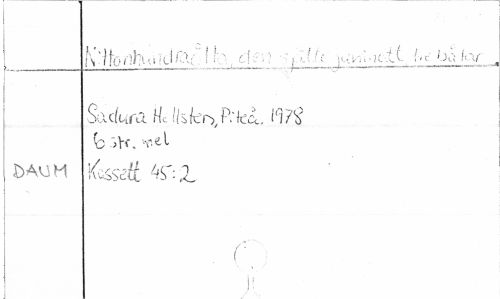 Nittonhundraåtta, den sjätte juni nett tre båtar
Sadura Hellsten, Piteå, 1978
6 str. mel
DAUM Kassett 45:2